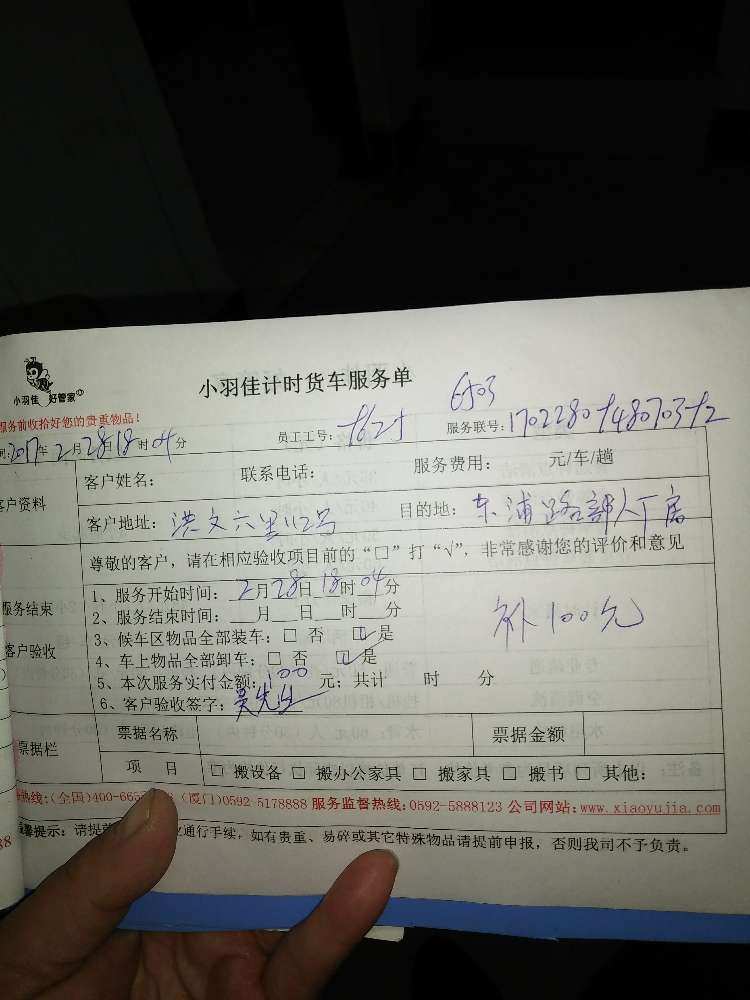 小羽佳 好管家
小羽佳计时货车服务单
6503
服务前收拾好您的贵重物品!
2017年2月28日18时04分 员工工号: 服务联号:
客户资料 客户姓名: 联系电话: 服务费用: 元/车/趟
客户地址:洪文六里112号 目的地:东浦路
尊敬的客户,请在相应验收项目前的“□”打“√”,非常感谢您的评价和意见
服务结束
客户验收
1、服务开始时间:2月28日18时04分
2、服务结束时间:___月___日___时___分
3、候车区物品全部装车:□ 否 ☑ 是
4、车上物品全部卸车:□ 否 ☑ 是
5、本次服务实付金额:100元;共计 时 分
6、客户验收签字:吴先生
补100元
票据栏 票据名称 票据金额
项 目 □ 搬设备 □ 搬办公家具 □ 搬家具 □ 搬书 □ 其他:
热线:(全国)400-665 (厦门)0592-5178888 服务监督热线:0592-5888123 公司网站:www.xiaoyujia.com
提示:请提前 通行手续,如有贵重、易碎或其它特殊物品请提前申报,否则我司不予负责。